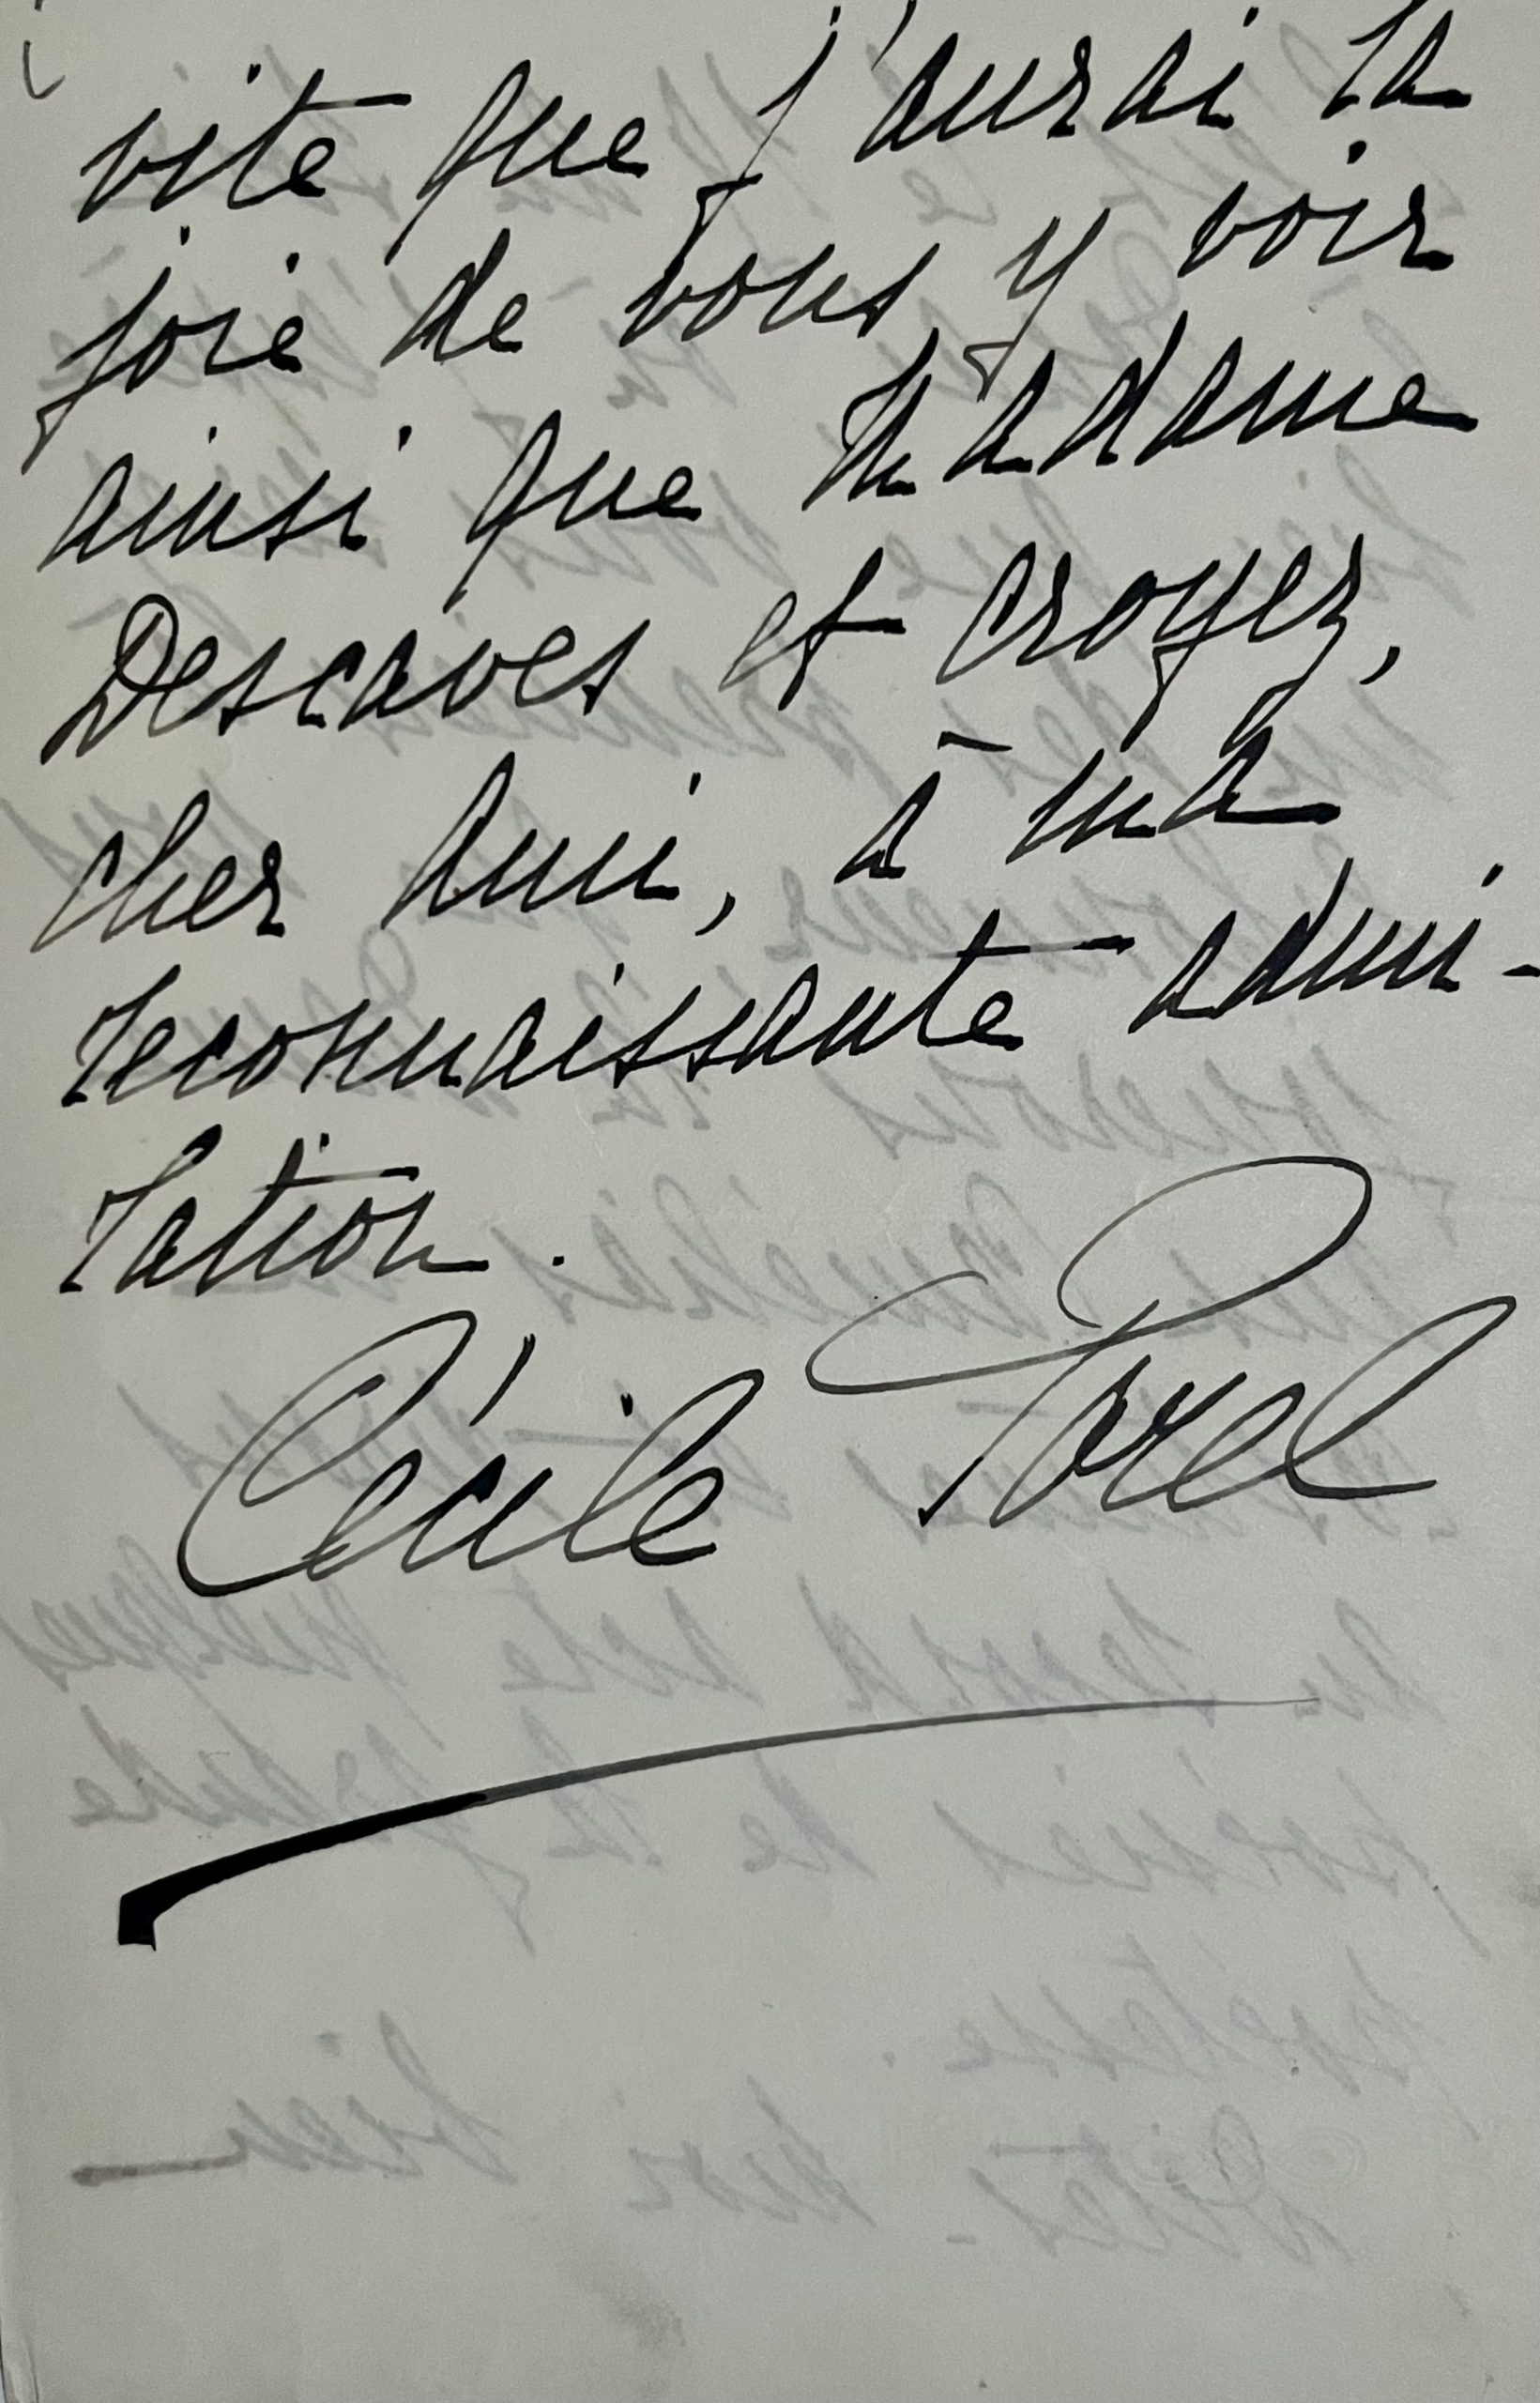 vite que j'aurai la
joie de vous y voir
ainsi que Madame
Descaves et croyez,
cher Ami, à ma
reconnaissante admi-
ration.
Cécile Sorel